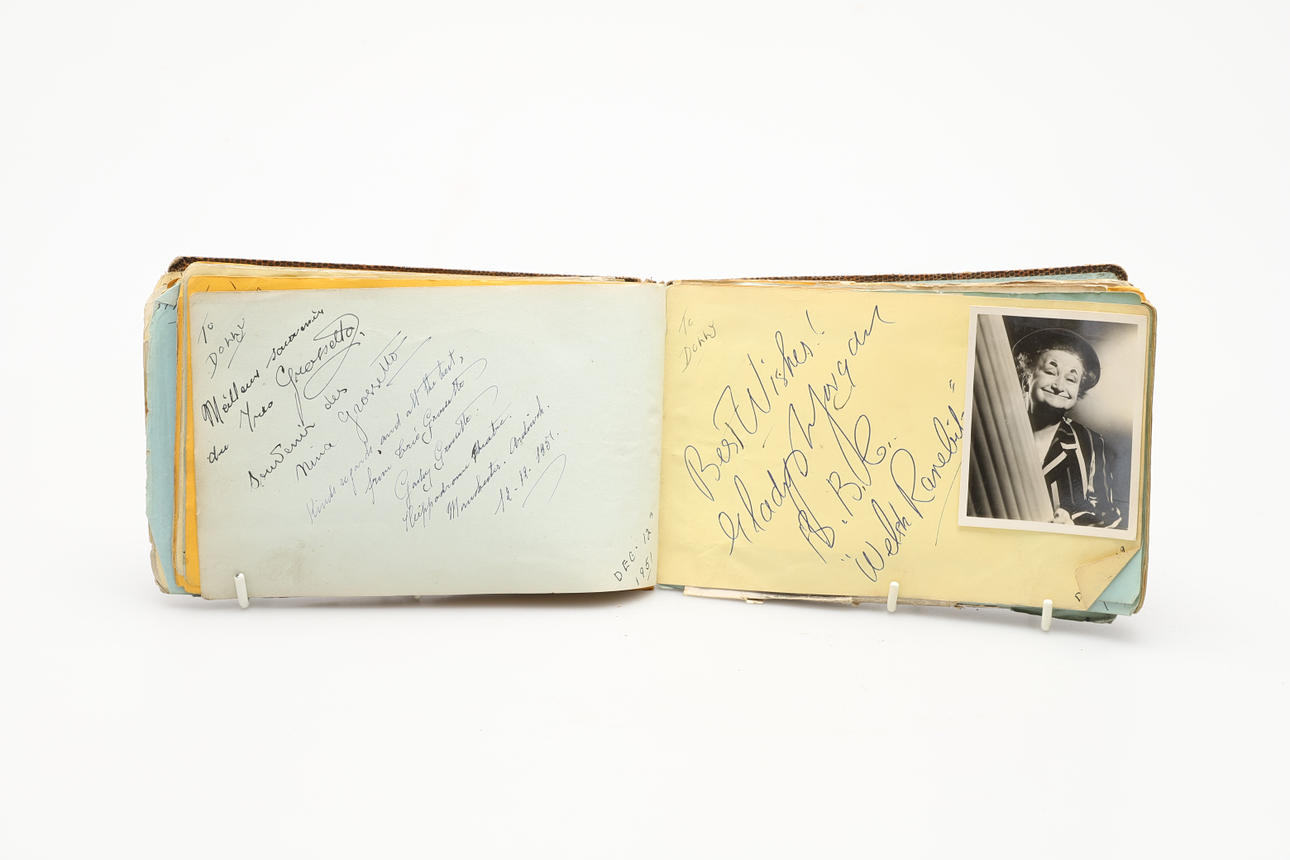 To
Donny
Meilleur souvenir
du Trio Grossetto.
Souvenir des
Nina Grossetto
Kinds regards and all the best,
from Trio Grossetto
Gaby Grossetto.
Hippodrome Theatre.
Manchester. Ardwick.
12-12-1951.
DEC. 12"
1951
To
Donny
Best Wishes!!
Gladys Morgan
B.B.C.
"Welsh Rarebit"